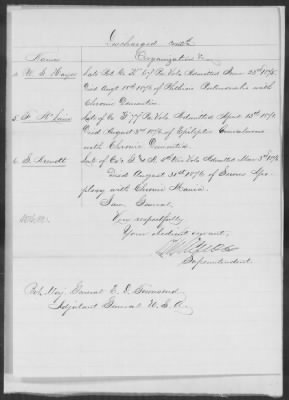 Discharged
Names Organization &c
4 W. S. Hayes Late Pvt Co. "K" 67 Pa Vols Admitted June 28th 187
Died Augt 18th 1876 of Phthisis Pulmonalis with
Chronic Dementia.
5 Late of Co. "F" 77" Pa Vols. Admitted April 15th 187
Died August 2nd 1876 of Epileptic Convulsions
with Chronic Dementia.
6 S. Late of Co's Vols Admitted 3rd 187
Died August 30th 1876 of Serous Apo-
plexy with Chronic Mania.
I am General
Very respectfully
Your obedient servant,
Superintendent.
Bvt. Maj. General E. D. Townsend
Adjutant General U.S.A.